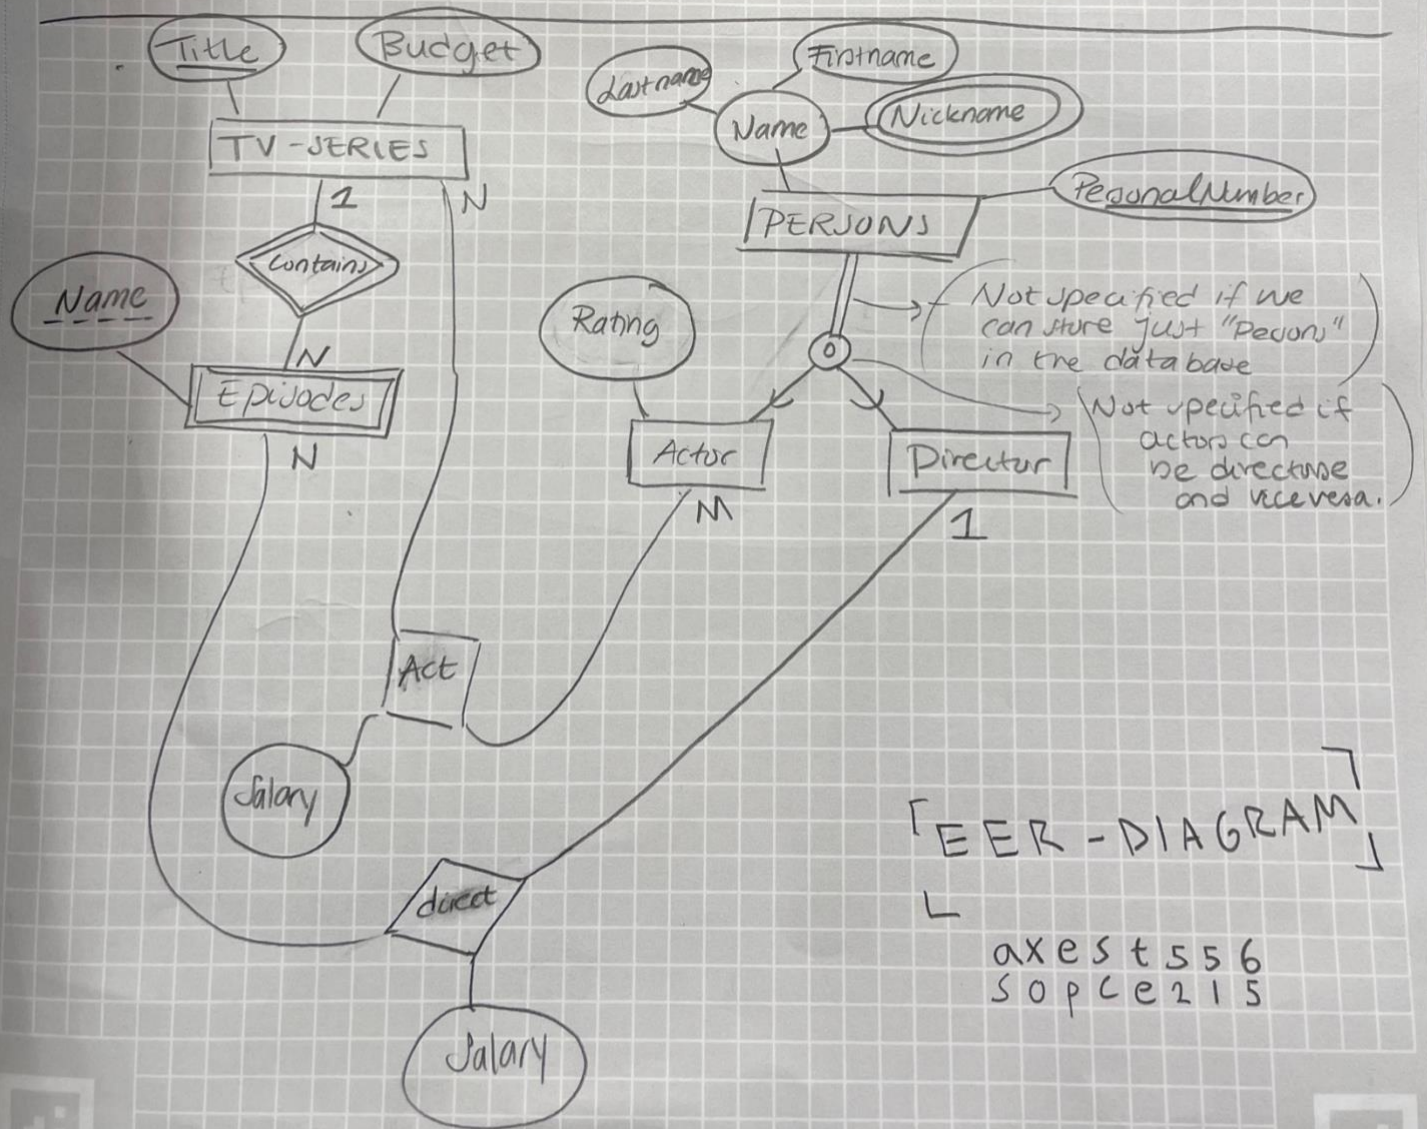 Title
Budget
TV-SERIES
1
N
Contains
Name
N
Episodes
N
Lastname
Firstname
Name
Nickname
PersonalNumber
PERSONS
Rating
o
Not specified if we
can store just "Persons"
in the database
Not specified if
actors can
be directors
and vice versa.
Actor
Director
M
1
Act
Salary
direct
Salary
EER-DIAGRAM
axest556
sopce215